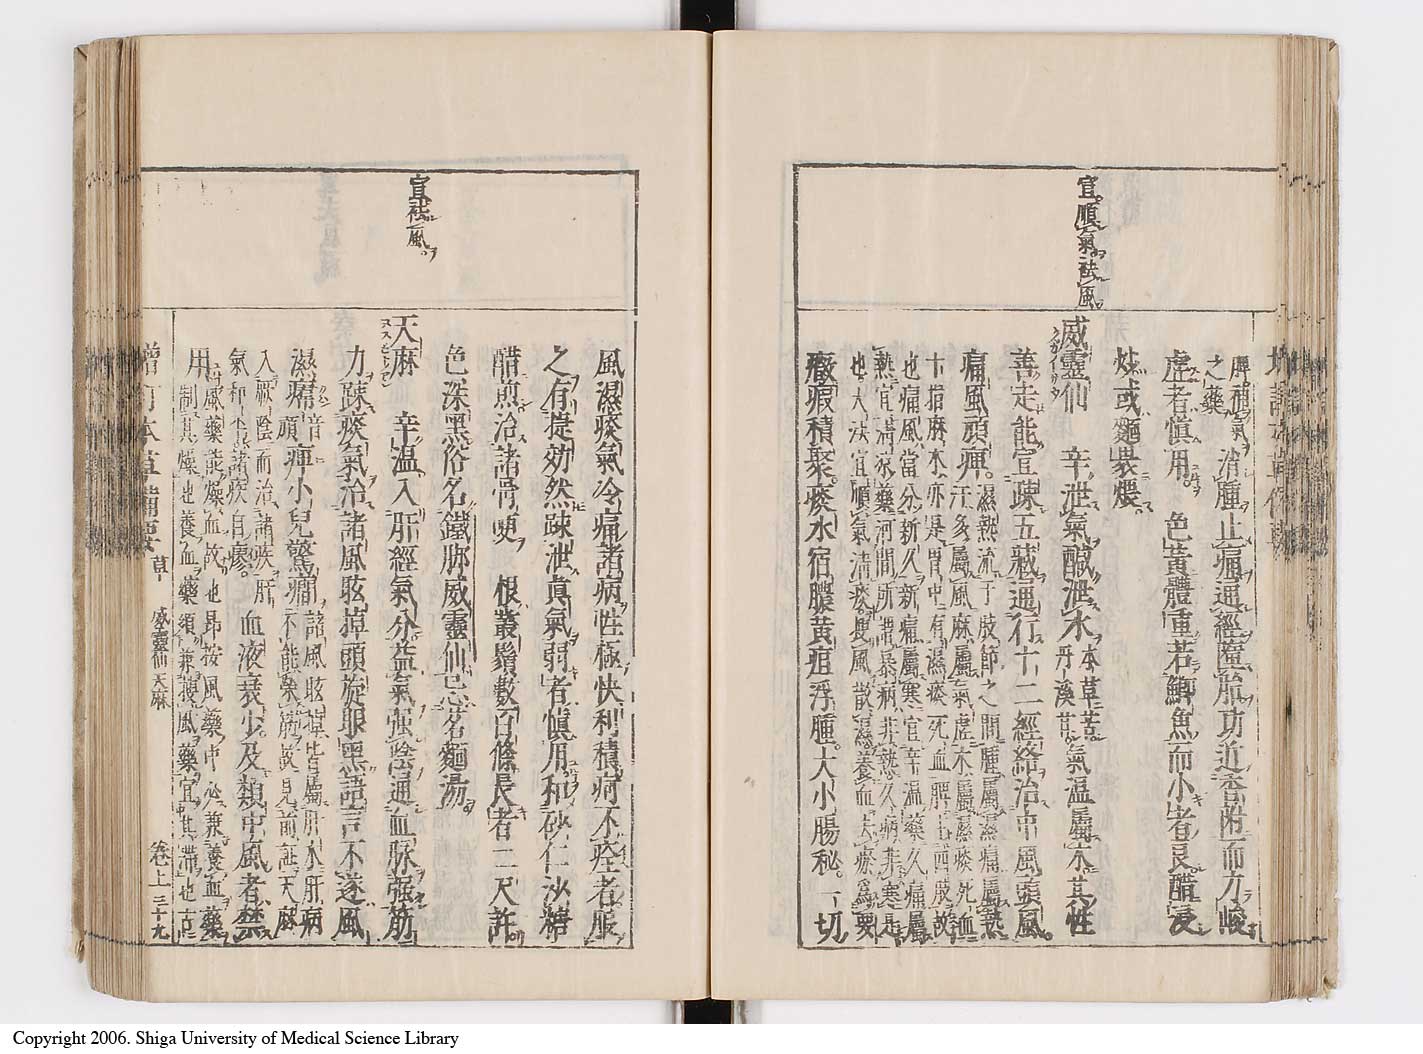 宜順氣祛風
脾補氣
之藥
消腫止痛通經墮胎功近香附而力峻
虛者慎用 色黃體重若鯽魚而小者良醋浸
炒或麵裹煨
威靈仙 辛泄氣鹹泄水
本草苦
丹溪苦
氣温屬木其性
善走能宣踈五藏通行十二經絡治中風頭風
痛風頑痺
濕熱流于肢節之間腫屬濕痛屬熱
汗多屬風麻屬氣虛木屬濕痰死血
十指麻木亦是胃中有濕痰死血脾主四肢故
也痛風當分新久新痛屬寒宜辛温藥久痛屬
熱宜清凉藥河間所謂暴病非熱久病非寒是
也大法宜順氣清痰搜風散濕養血去瘀為要
癥瘕積聚痰水宿膿黃疸浮腫大小腸秘一切
宜祛風
風濕痰氣冷痛諸病性極快利積痾不痊者服
之有捷効然踈泄真氣弱者慎用和砂仁沙糖
醋煎治諸骨哽 根叢鬚數百條長者二尺許
色深黑俗名鐵脚威靈仙忌茗麵湯
天麻 辛温入肝經氣分益氣强陰通血脉强筋
力踈痰氣治諸風眩掉頭旋眼黑語言不遂風
濕㿏
音
頑
痺小兒驚癎
諸風眩掉皆屬肝木肝病
不能榮筋故見前証天麻
入厥陰而治諸疾肝
氣和平諸疾自瘳
血液衰少及類中風者禁
用
風藥能燥血故也昂按風藥中必兼養血藥
制其燥也養血藥須兼搜風藥宜其滯也古
增訂本草備要 草 威靈仙 天麻 卷上 三十九
Copyright 2006. Shiga University of Medical Science Library